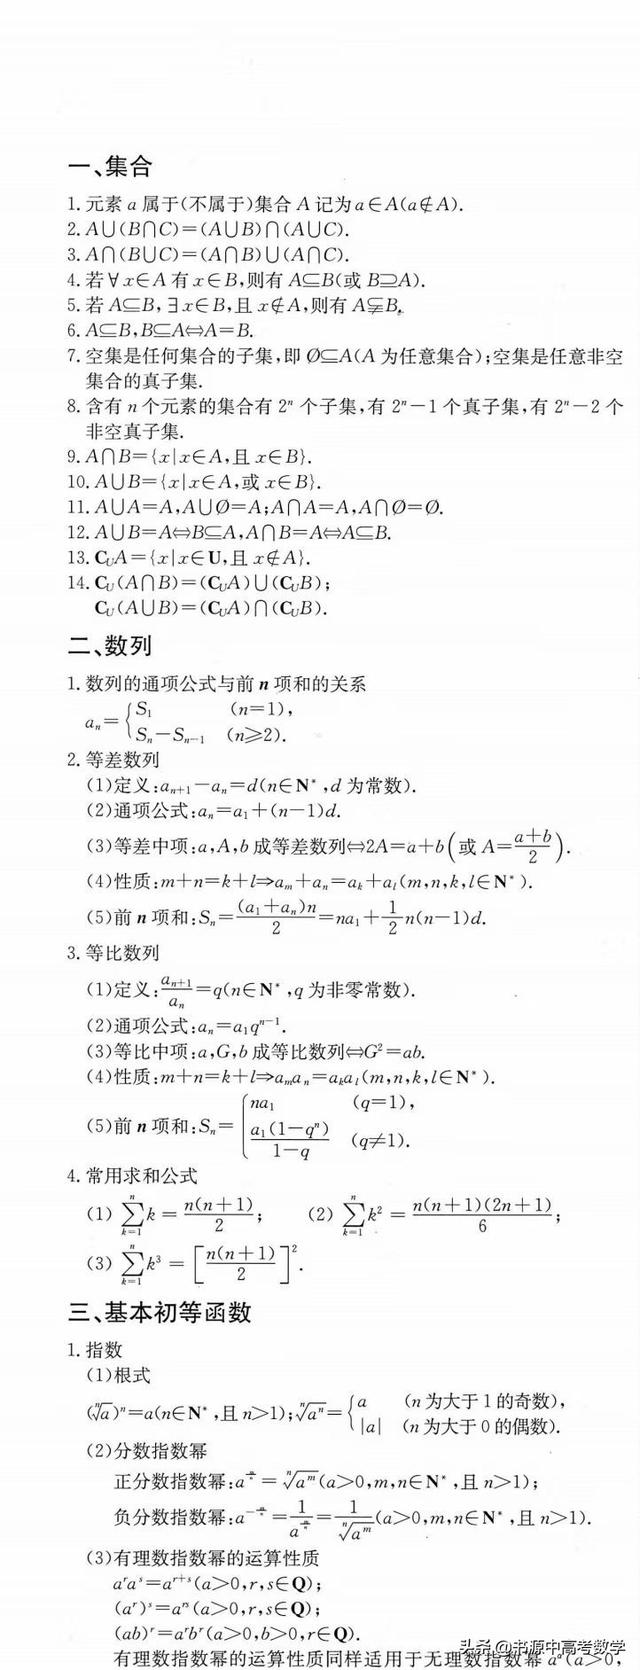 一、集合
1.元素a属于(不属于)集合A记为a∈A(a∉A).
2.A∪(B∩C)=(A∪B)∩(A∪C).
3.A∩(B∪C)=(A∩B)∪(A∩C).
4.若∀x∈A有x∈B,则有A⊆B(或B⊇A).
5.若A⊆B,∃x∈B,且x∉A,则有A⫋B.
6.A⊆B,B⊆A⇔A=B.
7.空集是任何集合的子集,即∅⊆A(A为任意集合);空集是任意非空
集合的真子集.
8.含有n个元素的集合有2ⁿ个子集,有2ⁿ-1个真子集,有2ⁿ-2个
非空真子集.
9.A∩B={x|x∈A,且x∈B}.
10.A∪B={x|x∈A,或x∈B}.
11.A∪A=A,A∪∅=A;A∩A=A,A∩∅=∅.
12.A∪B=A⇔B⊆A,A∩B=A⇔A⊆B.
13.∁_U A={x|x∈U,且x∉A}.
14.∁_U(A∩B)=(∁_U A)∪(∁_U B);
∁_U(A∪B)=(∁_U A)∩(∁_U B).
二、数列
1.数列的通项公式与前n项和的关系
a_n={S_1 (n=1),
S_n-S_{n-1} (n≥2).
2.等差数列
(1)定义:a_{n+1}-a_n=d(n∈N*,d为常数).
(2)通项公式:a_n=a_1+(n-1)d.
(3)等差中项:a,A,b成等差数列⇔2A=a+b(或A=(a+b)/2).
(4)性质:m+n=k+l⇒a_m+a_n=a_k+a_l(m,n,k,l∈N*).
(5)前n项和:S_n=(a_1+a_n)n/2=na_1+1/2n(n-1)d.
3.等比数列
(1)定义:a_{n+1}/a_n=q(n∈N*,q为非零常数).
(2)通项公式:a_n=a_1q^{n-1}.
(3)等比中项:a,G,b成等比数列⇔G²=ab.
(4)性质:m+n=k+l⇒a_ma_n=a_ka_l(m,n,k,l∈N*).
(5)前n项和:S_n={na_1 (q=1),
a_1(1-qⁿ)/(1-q) (q≠1).
4.常用求和公式
(1)∑_{k=1}^{n}k=n(n+1)/2; (2)∑_{k=1}^{n}k²=n(n+1)(2n+1)/6;
(3)∑_{k=1}^{n}k³=[n(n+1)/2]².
三、基本初等函数
1.指数
(1)根式
(ⁿ√a)ⁿ=a(n∈N*,且n>1);ⁿ√aⁿ={a (n为大于1的奇数),
|a| (n为大于0的偶数).
(2)分数指数幂
正分数指数幂:a^{m/n}=ⁿ√a^m(a>0,m,n∈N*,且n>1);
负分数指数幂:a^{-m/n}=1/a^{m/n}=1/ⁿ√a^m(a>0,m,n∈N*,且n>1).
(3)有理数指数幂的运算性质
a^ra^s=a^{r+s}(a>0,r,s∈Q);
(a^r)^s=a^{rs}(a>0,r,s∈Q);
(ab)^r=a^rb^r(a>0,b>0,r∈Q).
有理数指数幂的运算性质同样适用于无理数指数幂a^α(a>0,
头条@书源中高考数学